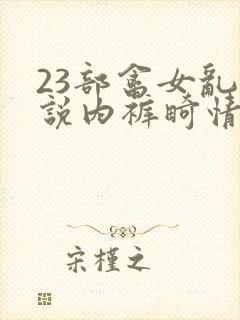 23部畜女乱
說内裤畸情
宋槿之